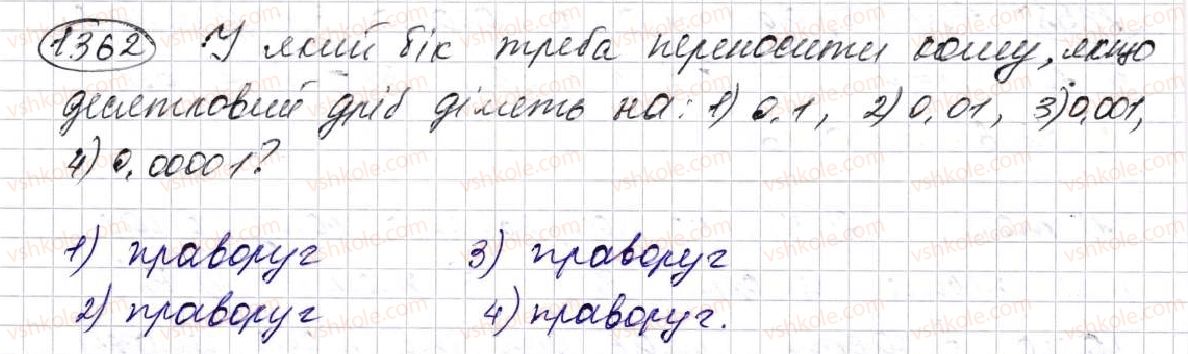 1362 У який бік треба переносити кому, якщо
десятковий дріб ділять на: 1) 0,1, 2) 0,01, 3) 0,001,
4) 0,00001?
1) праворуч 3) праворуч
2) праворуч 4) праворуч.